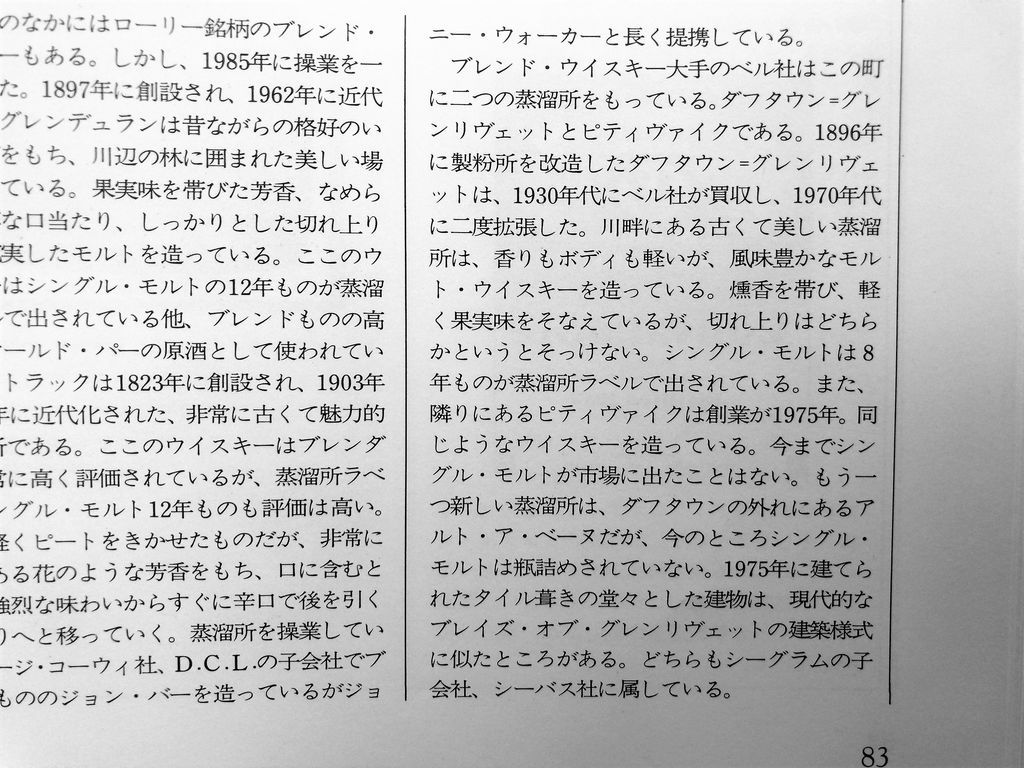 のなかにはローリー銘柄のブレンド・
ーもある。しかし、1985年に操業を一
た。1897年に創設され、1962年に近代
グレンデュランは昔ながらの格好のい
をもち、川辺の林に囲まれた美しい場
ている。果実味を帯びた芳香、なめら
な口当たり、しっかりとした切れ上り
実したモルトを造っている。ここのウ
はシングル・モルトの12年ものが蒸溜
で出されている他、ブレンドものの高
ールド・パーの原酒として使われてい
トラックは1823年に創設され、1903年
年に近代化された、非常に古くて魅力的
所である。ここのウイスキーはブレンダ
常に高く評価されているが、蒸溜所ラベ
ングル・モルト12年ものも評価は高い。
軽くピートをきかせたものだが、非常に
ある花のような芳香をもち、口に含むと
強烈な味わいからすぐに辛口で後を引く
りへと移っていく。蒸溜所を操業してい
ージ・コーウィ社、D.C.L.の子会社でブ
もののジョン・バーを造っているがジョ
ニー・ウォーカーと長く提携している。
ブレンド・ウイスキー大手のベル社はこの町
に二つの蒸溜所をもっている。ダフタウン=グレ
ンリヴェットとピティヴァイクである。1896年
に製粉所を改造したダフタウン=グレンリヴェ
ットは、1930年代にベル社が買収し、1970年代
に二度拡張した。川畔にある古くて美しい蒸溜
所は、香りもボディも軽いが、風味豊かなモル
ト・ウイスキーを造っている。燻香を帯び、軽
く果実味をそなえているが、切れ上りはどちら
かというとそっけない。シングル・モルトは8
年ものが蒸溜所ラベルで出されている。また、
隣りにあるピティヴァイクは創業が1975年。同
じようなウイスキーを造っている。今までシン
グル・モルトが市場に出たことはない。もう一
つ新しい蒸溜所は、ダフタウンの外れにあるア
ルト・ア・ベーヌだが、今のところシングル・
モルトは瓶詰めされていない。1975年に建てら
れたタイル葺きの堂々とした建物は、現代的な
ブレイズ・オブ・グレンリヴェットの建築様式
に似たところがある。どちらもシーグラムの子
会社、シーバス社に属している。
83